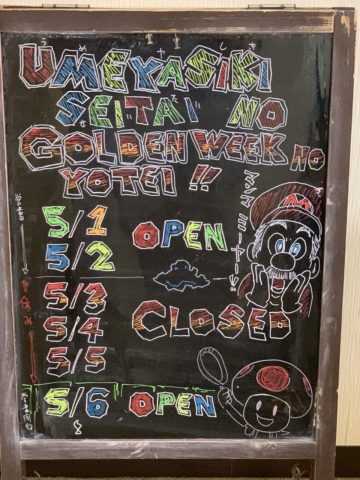 UMEYASIKI
SEITAI NO
GOLDEN WEEK NO
YOTEI!!
5/1
5/2
OPEN
5/3
5/4
5/5
CLOSED
5/6
OPEN
M